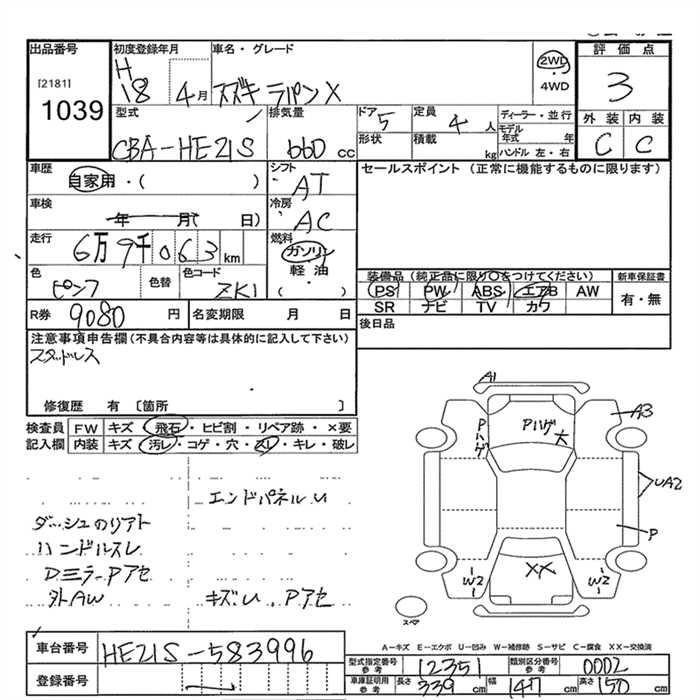 出品番号 初度登録年月 車名・グレード 評価点
[2181] H 2WD
1039 18 4月 スズキ ラパンX ・4WD 3
型式 排気量 ドア 5 定員 4人 ディーラー・並行 外装 内装
CBA-HE21S 660cc 形状 積載 kg モデル年式 年 C C
ハンドル 左・右
車歴 シフト セールスポイント (正常に機能するものに限ります)
自家用・( ) AT
車検 冷房
年 月( 日) AC
走行 燃料
6万9千063km ガソリン
色 色替 色コード 軽油 装備品(純正品に限り○をつけてください) 新車保証書
ピンク ZK1 ( ) PS PW ABS エアB AW 有・無
SR ナビ TV カワ
R券 9080円 名変期限 月 日 後日品
注意事項申告欄(不具合内容等は具体的に記入して下さい)
スタッドレス
修復歴 有 〔箇所 〕
検査員 FW キズ・飛石・ヒビ割・リペア跡・×要
記入欄 内装 キズ・汚レ・コゲ・穴・スレ・キレ・破レ
エンドパネルU
ダッシュのリアト
ハンドルスレ
DミラーPアセ
外AW キズU. Pアセ
A1
Pハゲ Pハゲ大 A3
UA2
P
W2 XX W2
スペア
A-キズ E-エクボ U-凹み W-補修跡 S-サビ C-腐食 XX-交換済
車台番号 HE21S-583996
登録番号
型式指定番号 参考 12351 類別区分番号 参考 0002
車庫証明用 参考 長さ 339cm 幅 147cm 高さ 150cm